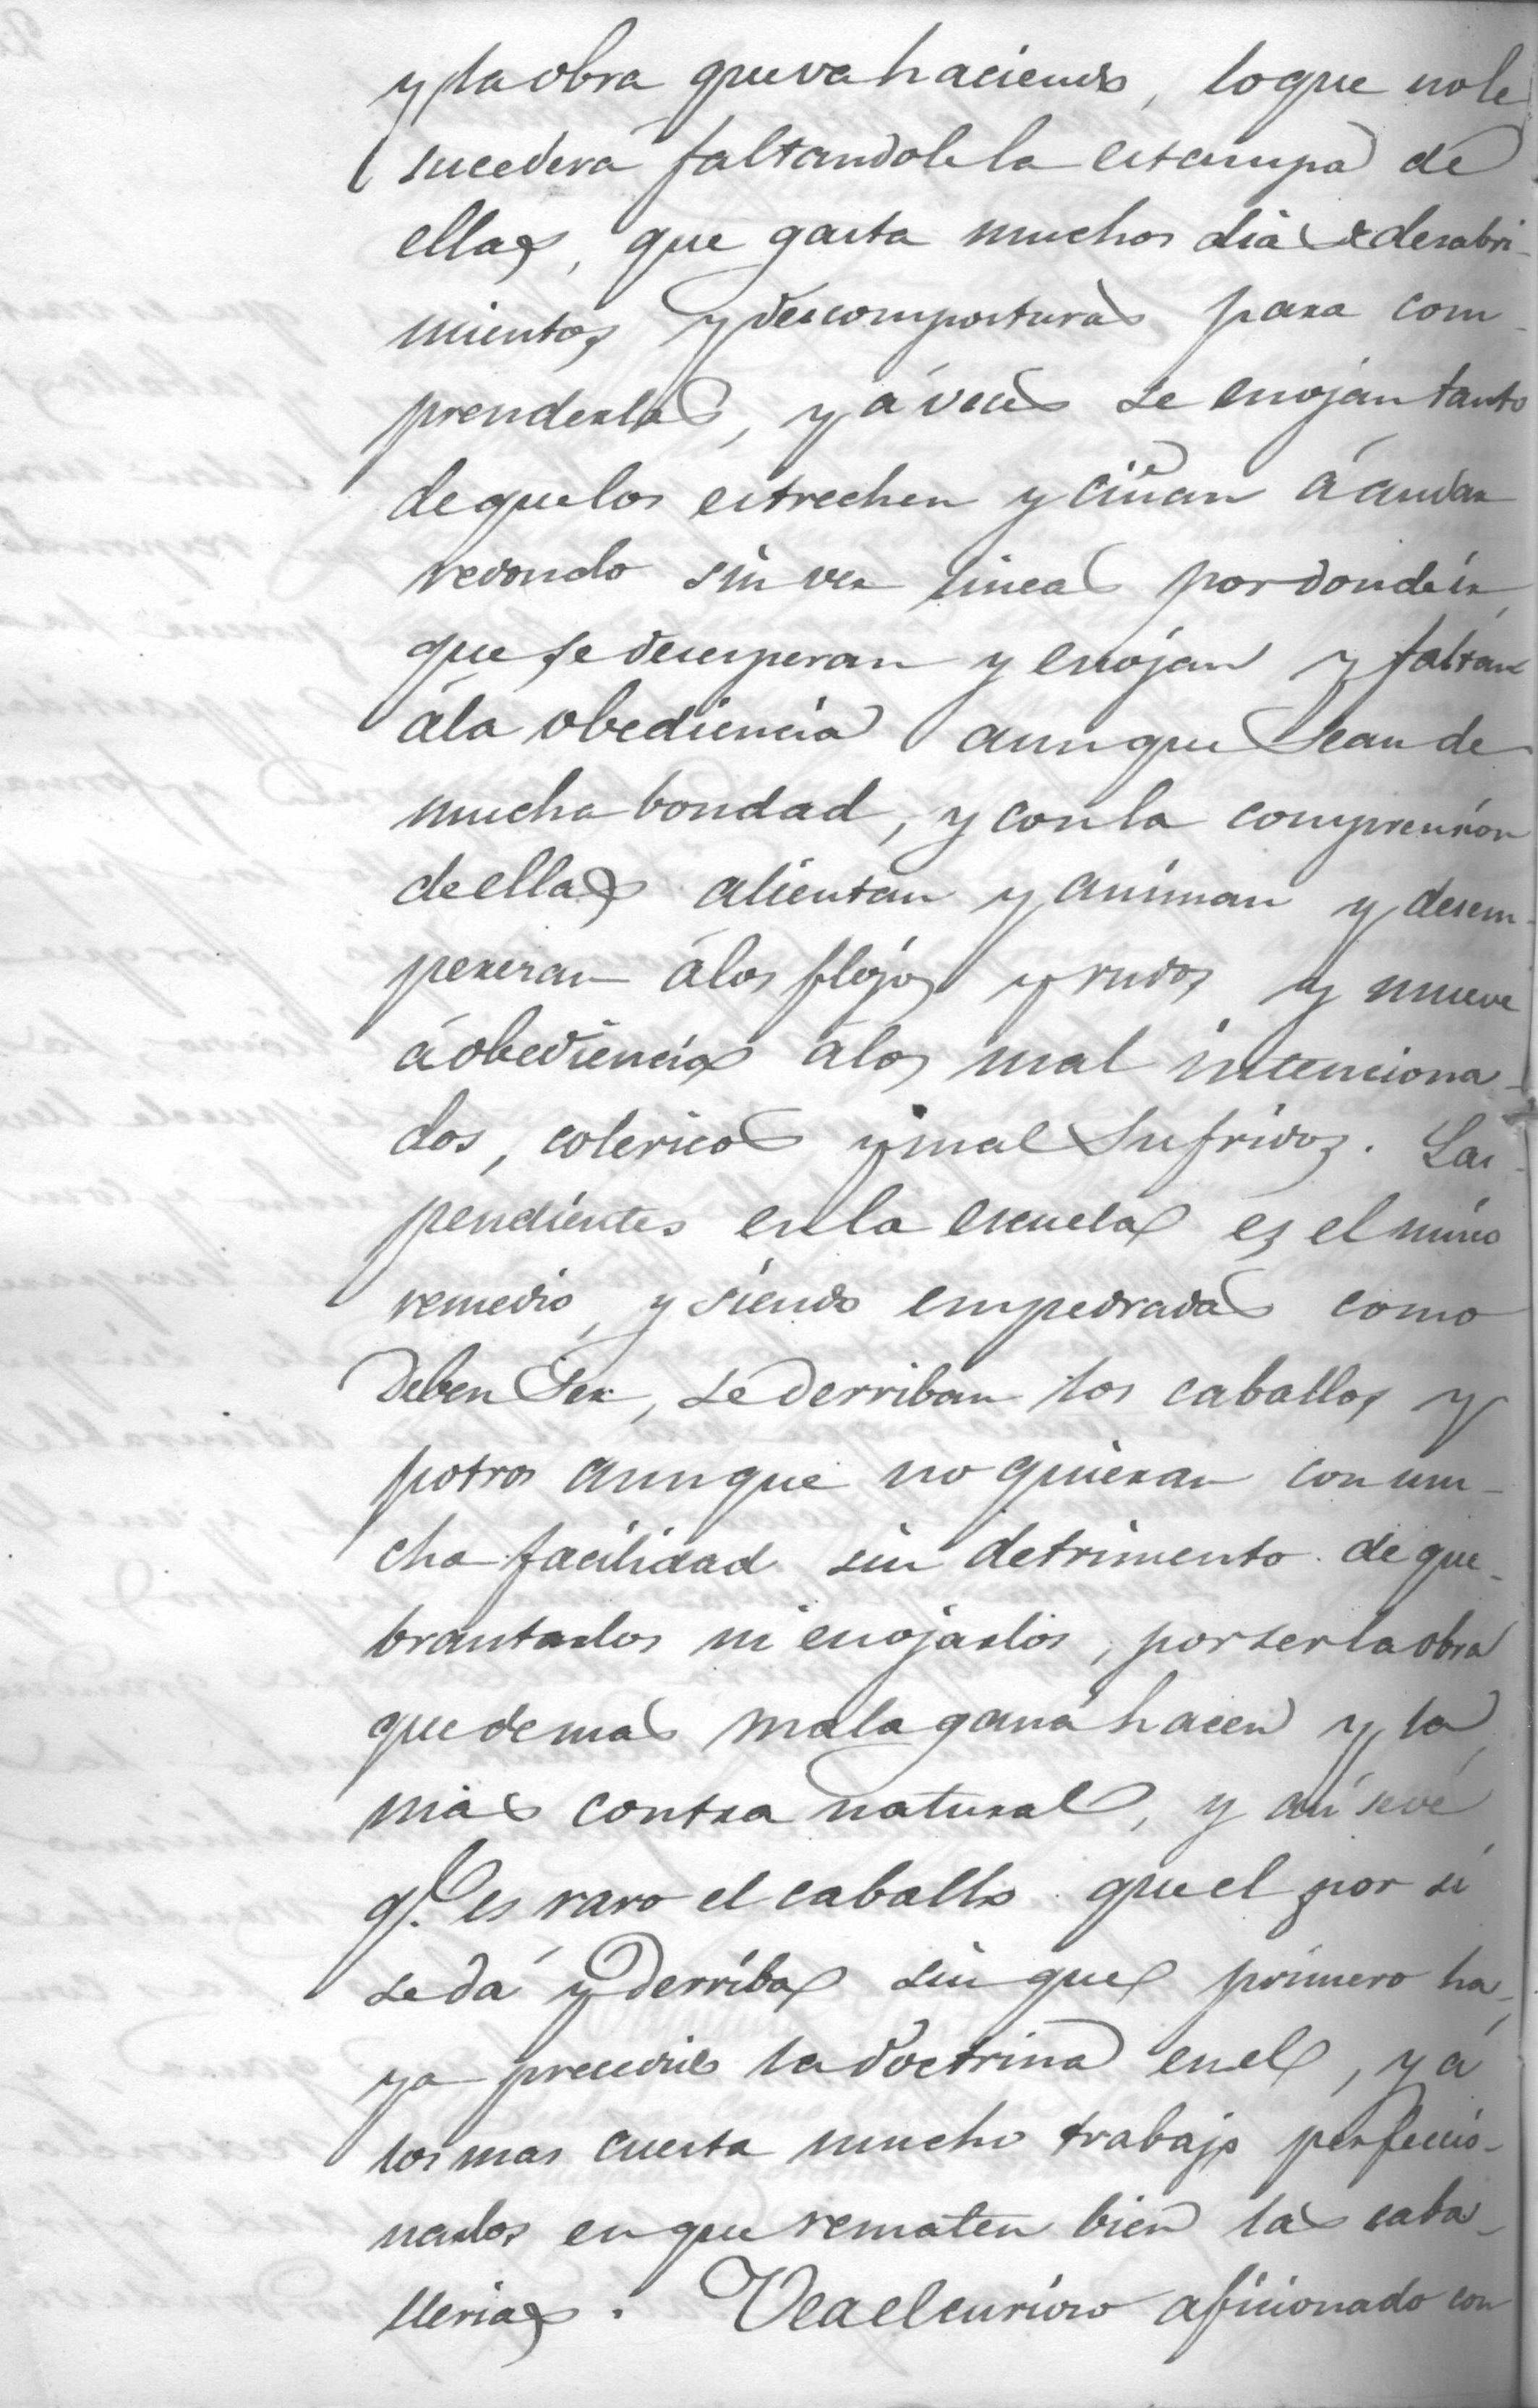 y la obra que va haciendo, lo que no le
sucederá faltandole la estampa de
ellas, que gasta muchos dias desabri-
mientos y descomposturas para com-
prenderlas, y á veces se enojan tanto
de que los estrechen y ciñan á andar
redondo sin ver lineas por donde ir,
que se desesperan y enojan y faltan
á la obediencia aunque sean de
mucha bondad, y con la comprension
de ellas alientan y animan y desem-
perezan á los flojos y rudos y mueve
á obediencia á los mal intenciona-
dos, colericos y mal sufridos. Las
pendientes en la escuela es el unico
remedio, y siendo empedradas como
deben ser, se derriban los caballos y
potros aunque no quieran con mu-
cha facilidad sin detrimento de que-
brantarlos ni enojarlos, por ser la obra
que de mas mala gana hacen y la
mas contra natural, y asi se vé
q.e es raro el caballo que el por si
se dá y derriba sin que primero ha-
ya precedido la doctrina en el, y á
los mas cuesta mucho trabajo perfeccio-
narlos en que rematen bien las caba-
llerias. Vea el curioso aficionado con